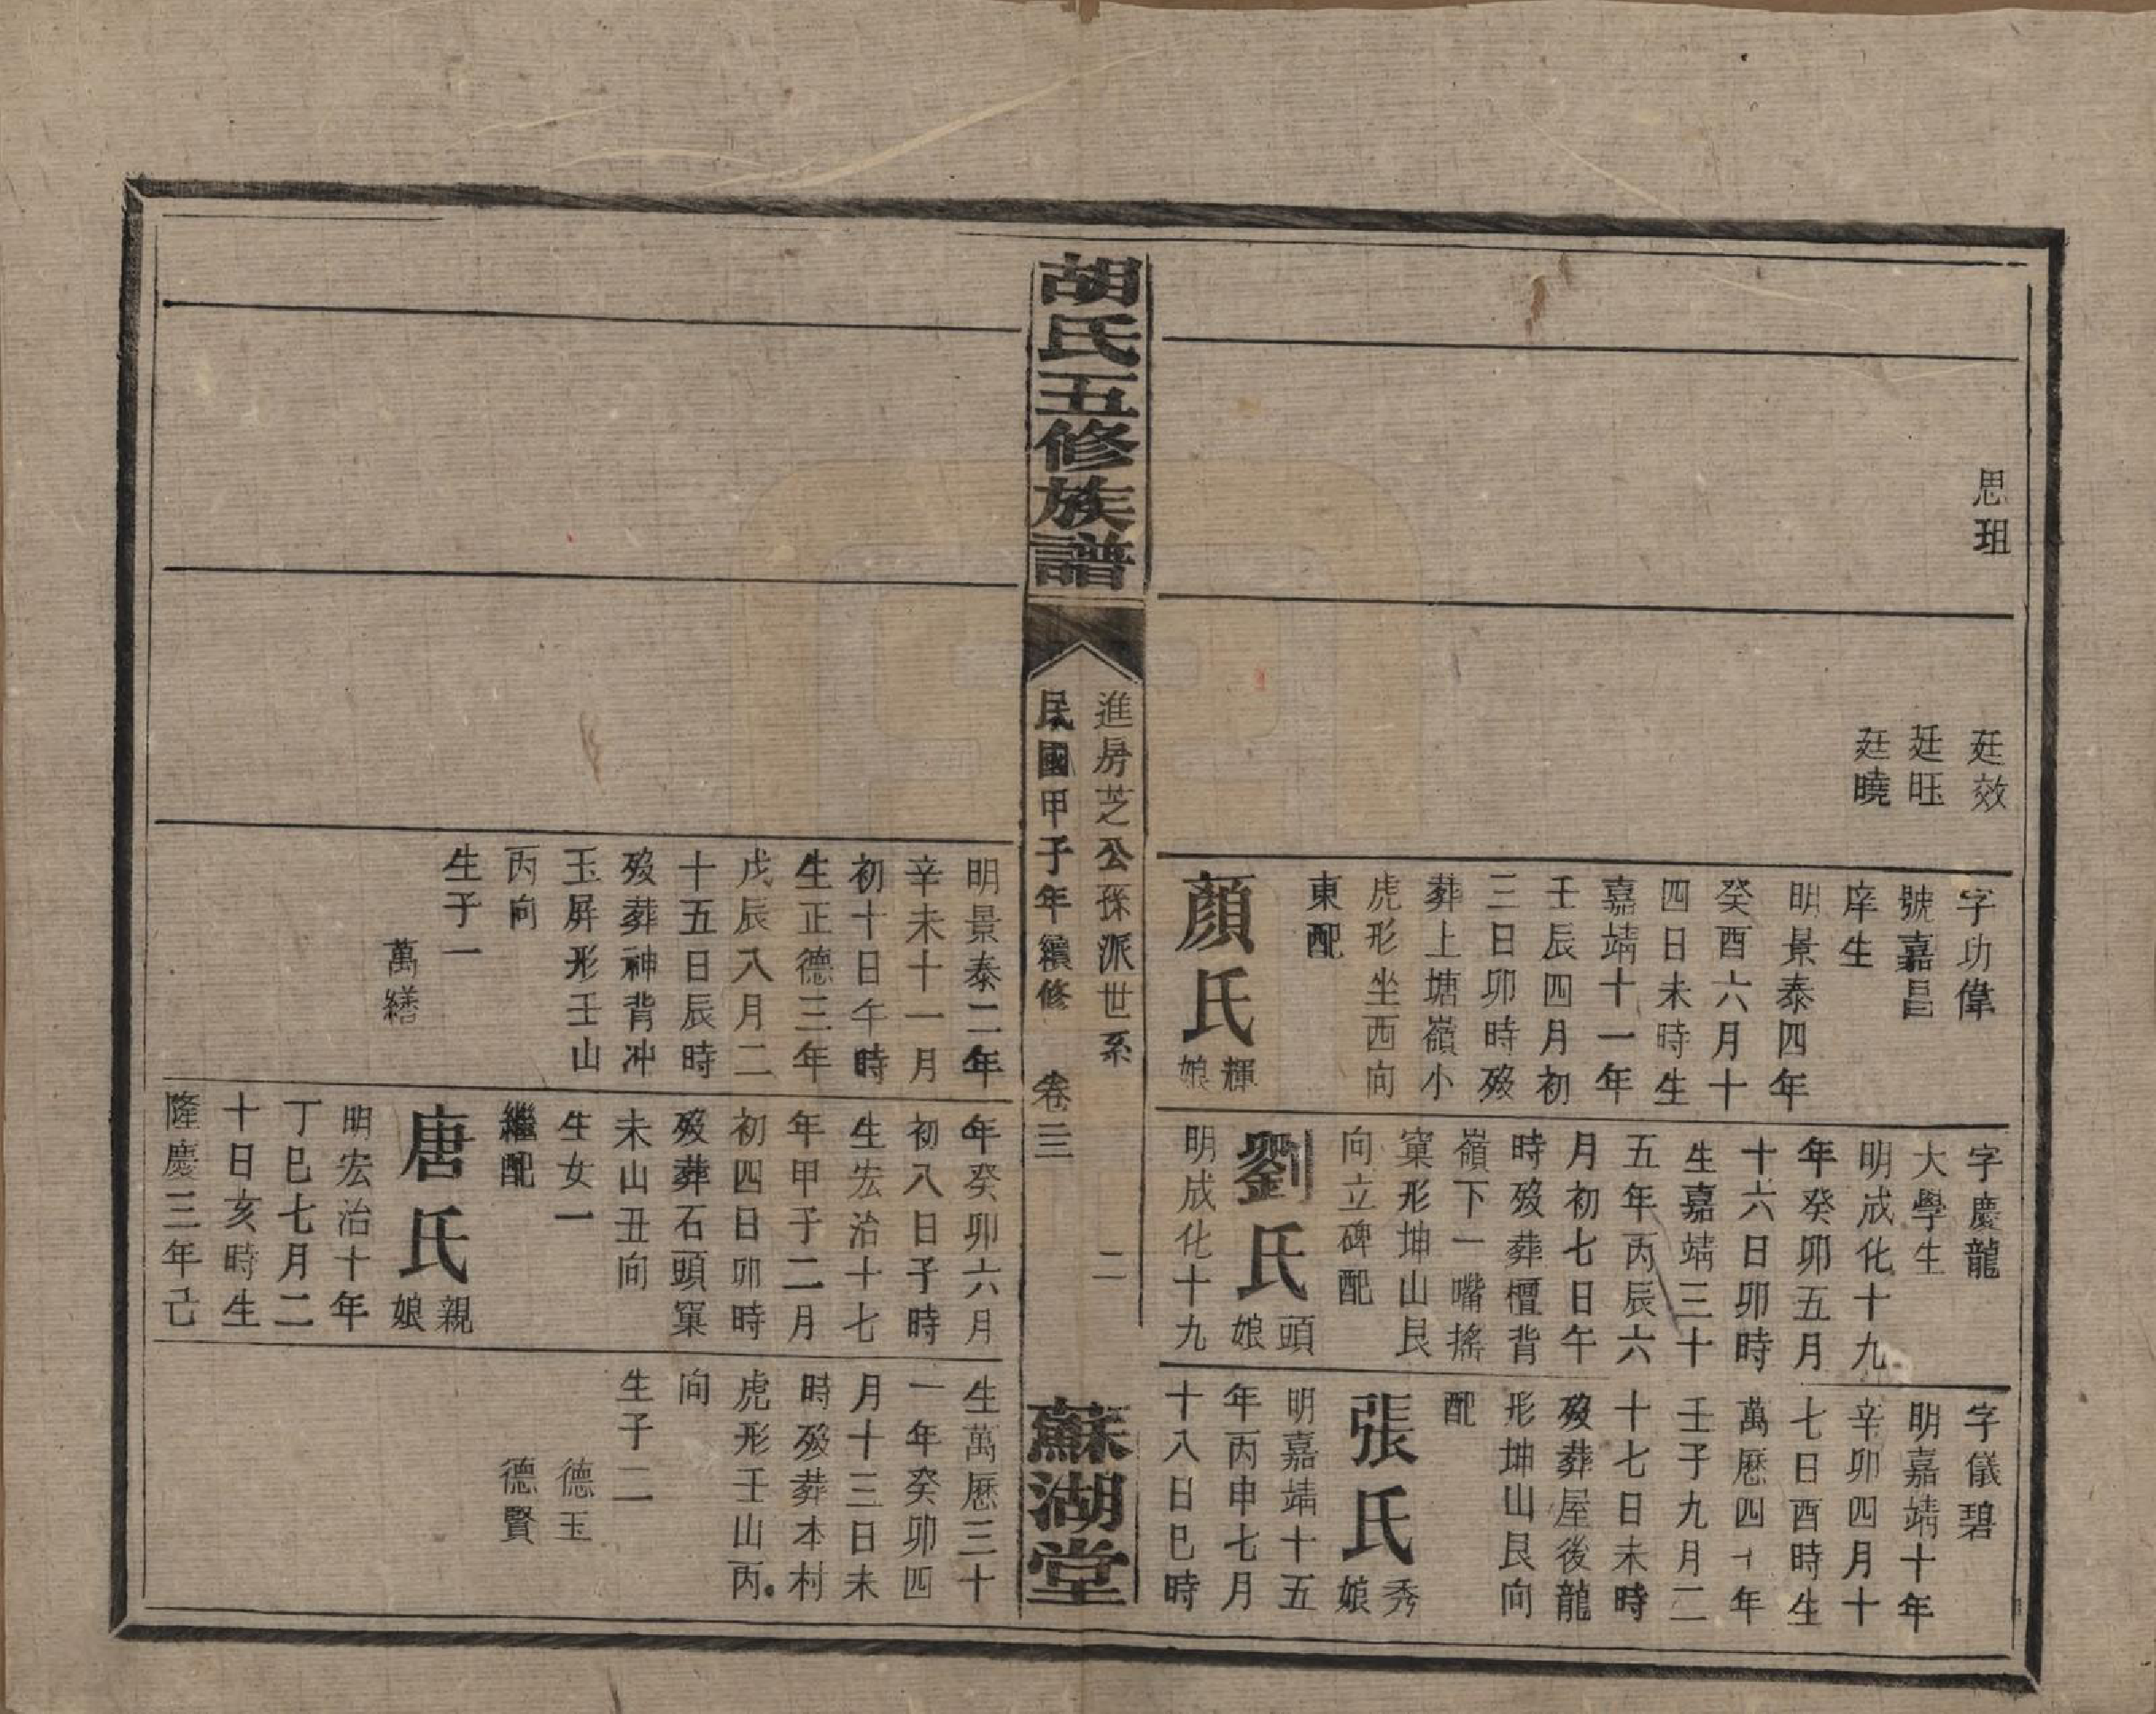 思珇
廷效
廷旺
廷曉
字功偉
號嘉昌
庠生
明景泰四年
癸酉六月十
四日未時生
嘉靖十一年
壬辰四月初
三日卯時歿
葬上塘嶺小
虎形坐西向
東配
顏氏輝娘
字慶龍
大學生
明成化十九
年癸卯五月
十六日卯時
生嘉靖三十
五年丙辰六
月初七日午
時歿葬檀背
嶺下一嘴搖
窠形坤山艮
向立碑配
劉氏頭娘
明成化十九
字儀碧
明嘉靖十年
辛卯四月十
七日酉時生
萬歷四十年
壬子九月二
十七日未時
歿葬屋後龍
形坤山艮向
配
張氏秀娘
明嘉靖十五
年丙申七月
十八日巳時
胡氏五修族譜
進房芝公孫派世系
二
民國甲子年續修
卷三
蘇湖堂
明景泰二年
辛未十一月
初十日午時
生正德三年
戊辰八月二
十五日辰時
歿葬神背冲
玉屏形壬山
丙向
生子一
萬繕
年癸卯六月
初八日子時
生宏治十七
年甲子二月
初四日卯時
歿葬石頭窠
未山丑向
生女一
繼配
唐氏親娘
明宏治十年
丁巳七月二
十日亥時生
隆慶三年己
生萬歷三十
一年癸卯四
月十三日未
時歿葬本村
虎形壬山丙
向
生子二
德玉
德賢